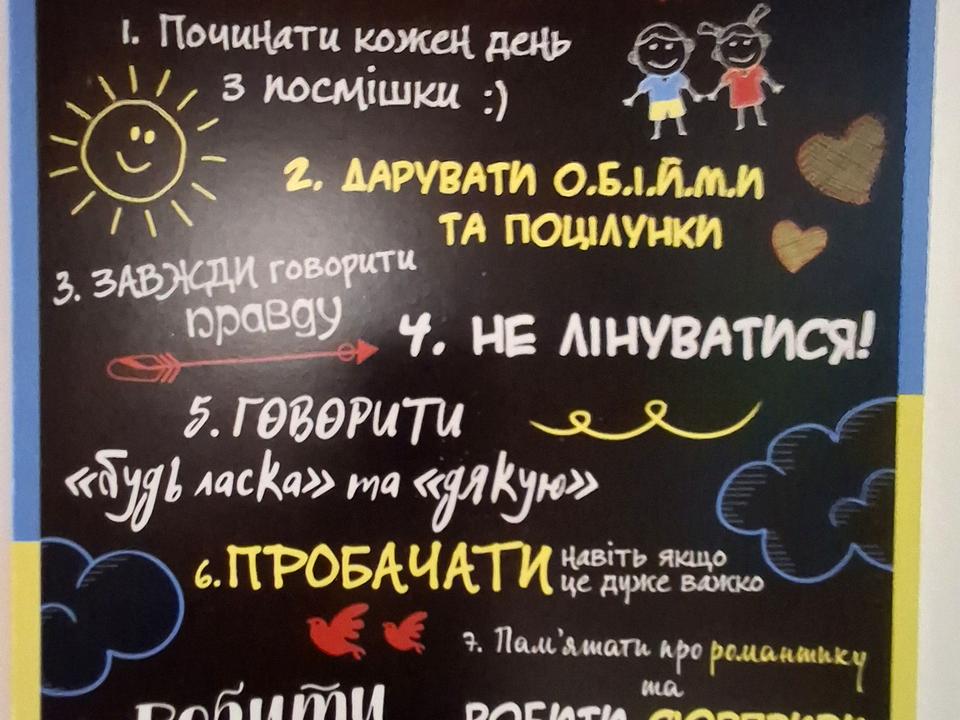 1. Починати кожен день
з посмішки :)
2. ДАРУВАТИ О.Б.І.Й.М.И
ТА ПОЦІЛУНКИ
3. ЗАВЖДИ говорити
правду
4. НЕ ЛІНУВАТИСЯ!
5. ГОВОРИТИ
«будь ласка» та «дякую»
6. ПРОБАЧАТИ навіть якщо
це дуже важко
7. Пам'ятати про романтику
та
робити
РОБИТИ